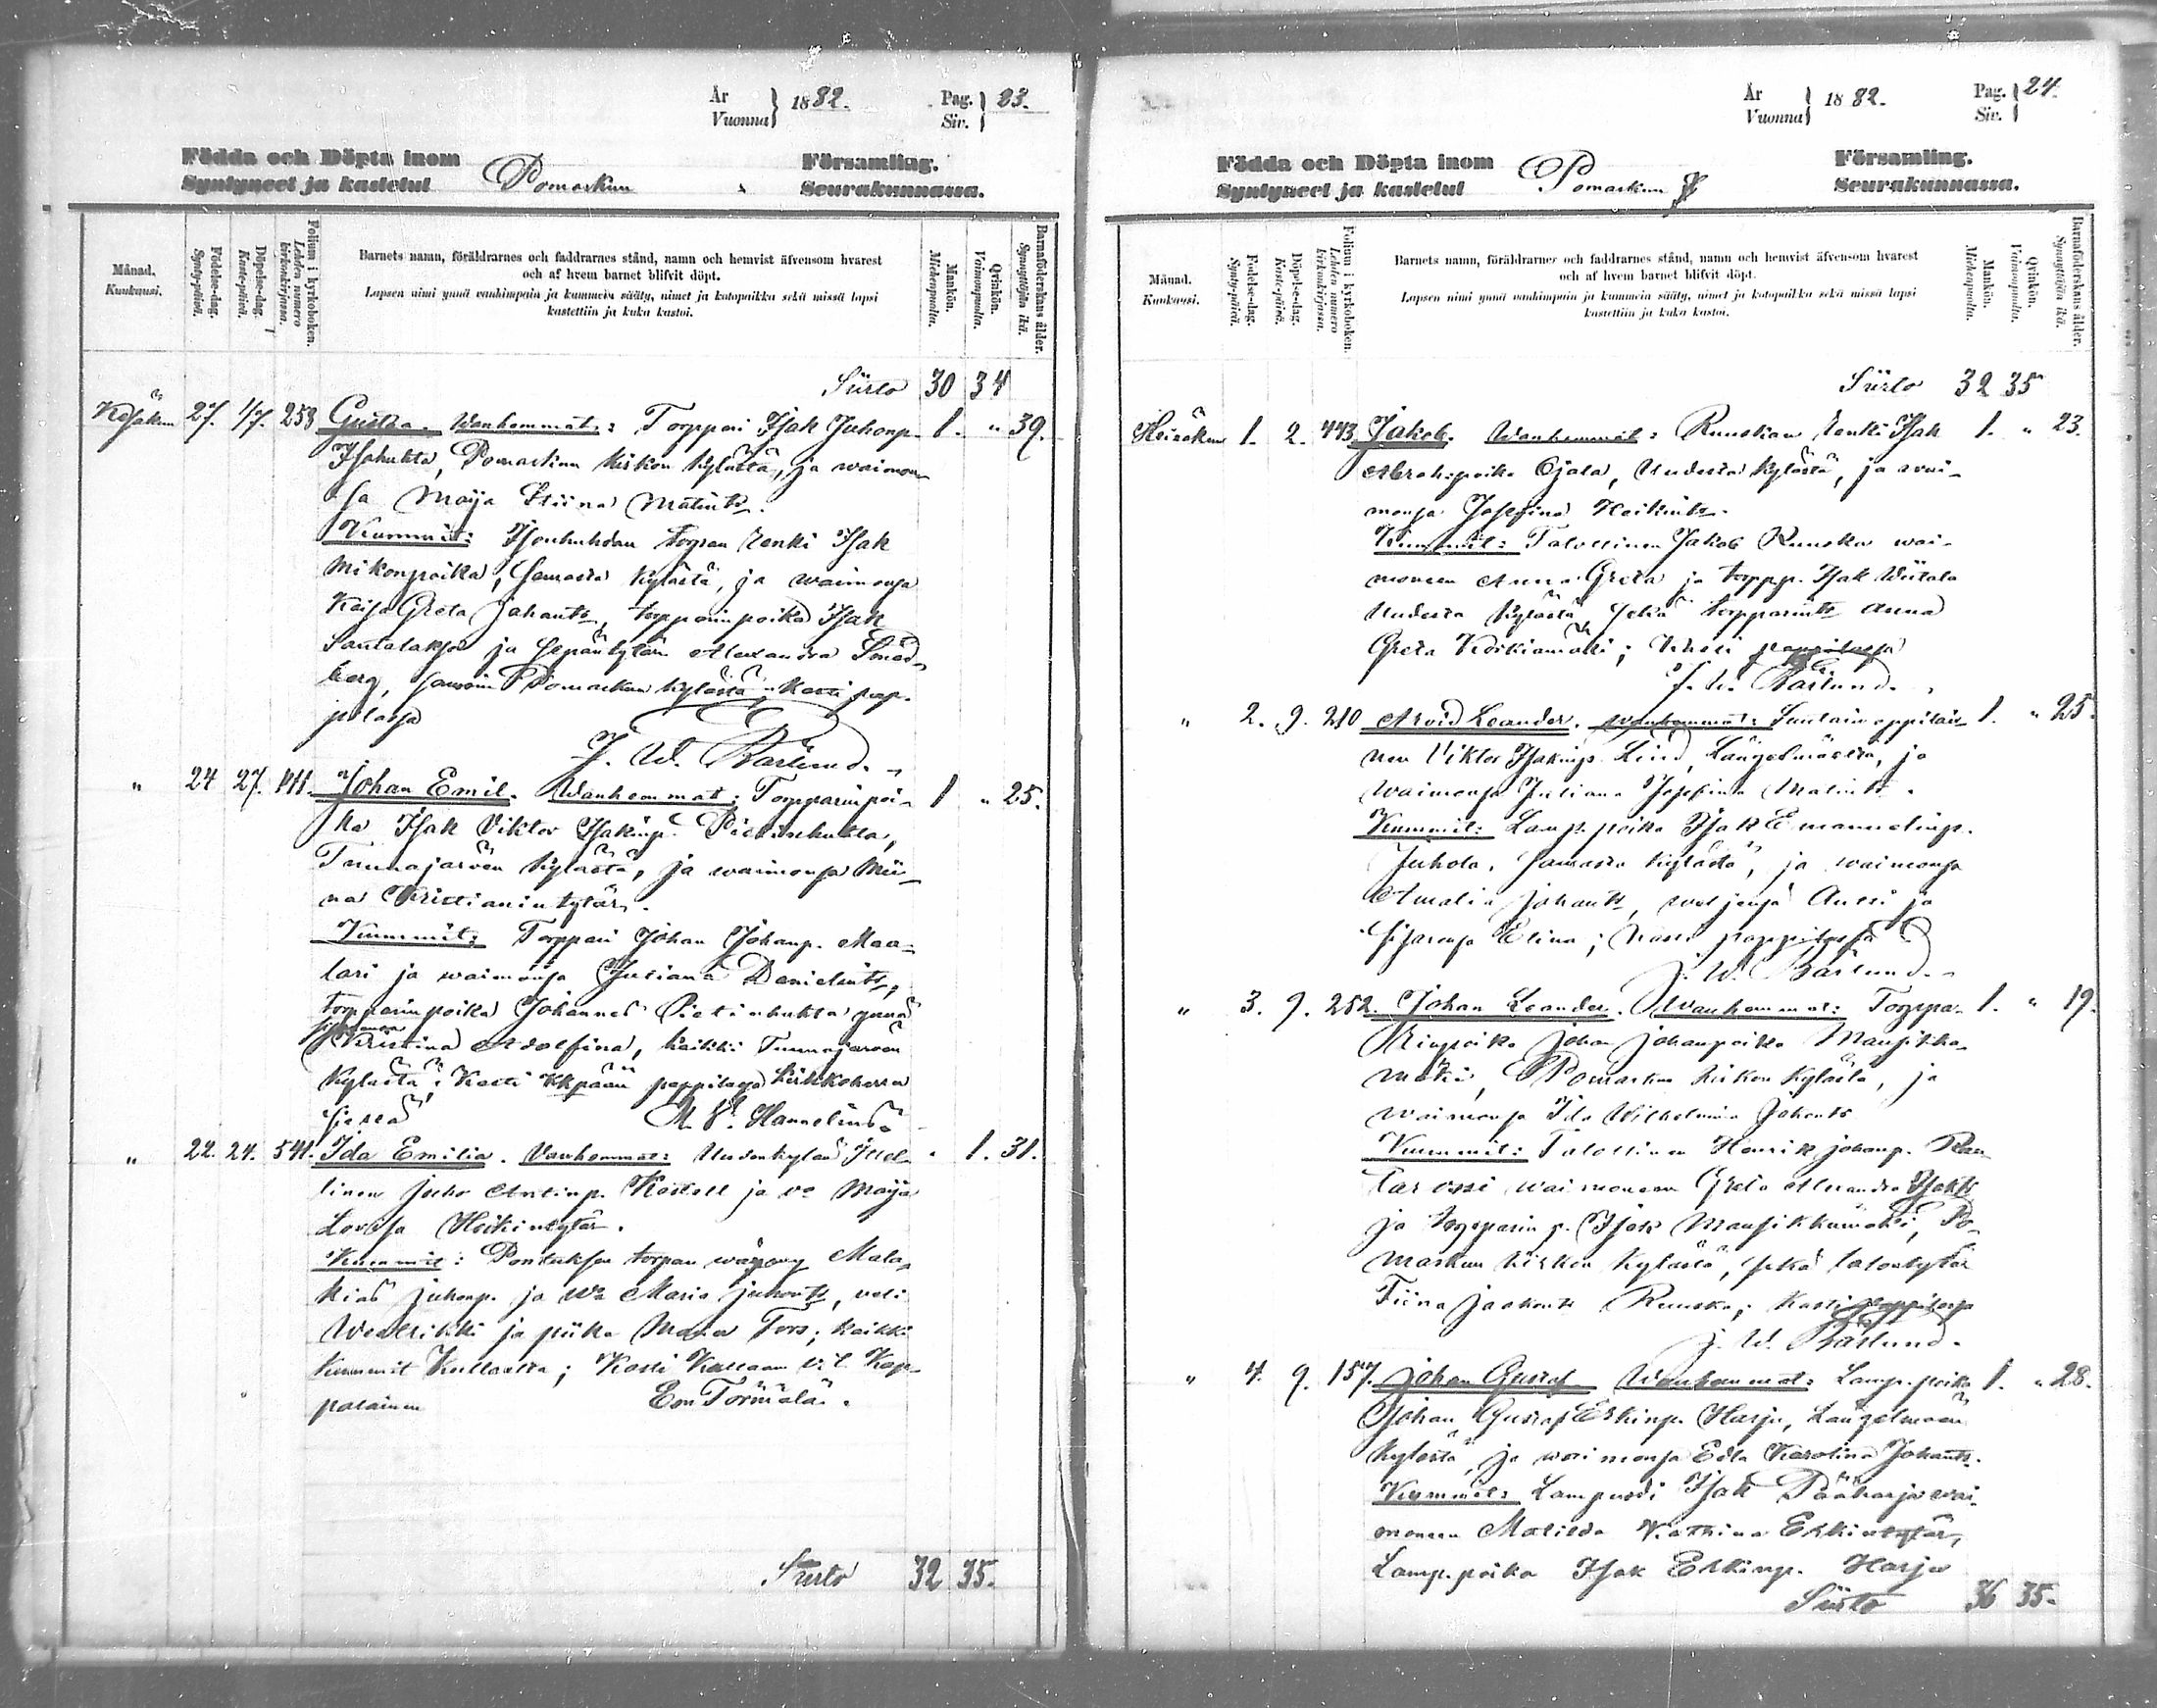 År
Vuonna } 1882. Pag.
Siv. } 23.
Födda och Döpta inom Församling.
Syntyneet ja kastetut Pomarkun Seurakunnassa.
Månad.
Kuukausi.
Födelse-dag.
Synty-päivä.
Döpelse-dag.
Kaste-päivä.
Folium i kyrkoboken.
Lehden numero kirkonkirjassa.
Barnets namn, föräldrarnes och faddrarnes stånd, namn och hemvist äfvensom hvarest
och af hvem barnet blifvit döpt.
Lapsen nimi ynnä vanhimpain ja kummein sääty, nimet ja kotopaikka sekä missä lapsi
kastettiin ja kuka kastoi.
Mankön.
Miehenpuolia.
Qvinkön.
Vaimonpuolia.
Barnaföderskans ålder.
Synnyttäjän ikä.
Siirto 30 34
Kesäkuu 27. 1/7. 253 Gustaa. Wanhemmat: Torppari Isak Juhonp. 1. " 39.
Isohuhta, Pomarkun kirkon kylästä, ja waimon
sa Maija Stiina Matintr.
Kummit: Isonhuhdan torpan renki Isak
Mikonpoika, samasta kylästä, ja waimonsa
Kaisa Greta Johantr, torpparinpoika Isak
Santalakso ja sepäntytär Alexandra Smed-
berg, samoin Pomarkun kylästä; kasti pap-
pilassa
J. W. Barlund.
" 24 27. 111. Johan Emil. Wanhemmat: Torpparinpoi- 1 " 25.
ka Isak Viktor Isakinp. Pietinhuhta,
Tuunajärven kylästä, ja waimonsa Mii-
na Kristianintytär.
Kummit: Torppari Johan Johanp. Maa-
lari ja waimonsa Juliana Danielintr,
torpparinpoika Johannes Pietinhuhta ynnä
sisarensa
Kristina Adolfina, kaikki Tuunajärven
kylästä; Kasti Kkpään pappilassa kirkkoherra
siellä M. V. Hannelius
" 22. 24. 541. Ida Emilia. Vanhemmat: Uudenkylän Itsel- " 1. 31.
linen Juho Antinp. Koskell ja vo Maija
Lovisa Heikintytär.
Kummit: Pontuksen torpan wäypoy Mala-
kias Juhonp. ja Wo Maria Juhontr, veli
ja piika Maria Tors; kaikki
kummit Kullaalta; Kasti Kullaan Vil. Kap-
palainen Em Törmälä.
Siirto 32 35.
År
Vuonna } 1882. Pag.
Siv. } 24.
Födda och Döpta inom Församling.
Syntyneet ja kastetut Pomarkun Seurakunnassa.
Månad.
Kuukausi.
Födelse-dag.
Synty-päivä.
Döpelse-dag.
Kaste-päivä.
Folium i kyrkoboken.
Lehden numero kirkonkirjassa.
Barnets namn, föräldrarnes och faddrarnes stånd, namn och hemvist äfvensom hvarest
och af hvem barnet blifvit döpt.
Lapsen nimi ynnä vanhimpain ja kummein sääty, nimet ja kotopaikka sekä missä lapsi
kastettiin ja kuka kastoi.
Mankön.
Miehenpuolia.
Qvinkön.
Vaimonpuolia.
Barnaföderskans ålder.
Synnyttäjän ikä.
Siirto 32 35
Heinäkuu 1. 2. 443 Jakob. Wanhemmat: Ruuskan renki Isak 1. " 23.
Abrah:poika Ojala, Uudesta kylästä, ja wai-
monsa Josefina Heikintr.
Kummit: Talollinen Jakob Ruuska wai-
moneen Anna Greta ja torpp. Isak Wiitala
Uudesta kylästä, sekä torpparintr Anna
Greta ; kasti pappilassa
J. W. Barlund.
" 2. 9. 210 Arvid Leander. Wanhemmat: Suutarin oppilai- 1. " 25.
nen Viktor Isakinp. Lind, Längelmästä, ja
waimonsa Juliana Josefina Matintr.
Kummit: Lamp. poika Isak Emanuelinp.
Juhola, samasta kylästä, ja waimonsa
Amalia Johantr, weljensä Antti ja
sisarensa Elina; kasti pappilassa
J. W. Barlund.
" 3. 9. 252. Johan Leander. Wanhemmat: Torppa- 1. " 19.
rinpoika Johan Johanpoika Mansikka-
mäki, Pomarkun kirkon kylästä, ja
waimonsa Ida Wilhelmina Johantr
Kummit: Talollinen Henrik Johanp. Ran
tarossi waimoneen Greta Alexandra Isaktr
ja torpparin p. Isak Mansikkamäki, Po-
markun kirkon kylästä, sekä talontytär
Tiina Jaakontr Ruuska; kasti pappilassa
J. W. Barlund.
" 4. 9. 157. Johan Gustaf Wanhemmat: Lamp. poika 1. " 28.
Johan Gustaf Erkinp. Harju, Längelmään
kylästä, ja waimonsa Edla Karolina Johantr.
Kummit: Lampuodi Isak Pääharju wai-
moneen Matilda Kathrina Erkintytär,
Lamp. poika Isak Erkinp. Harju
Siirto 36 35.